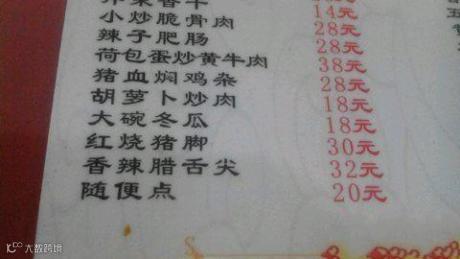 14元
小炒脆骨肉 28元
辣子肥肠 28元
荷包蛋炒黄牛肉 38元
猪血焖鸡杂 28元
胡萝卜炒肉 18元
大碗冬瓜 18元
红烧猪脚 30元
香辣腊舌尖 32元
随便点 20元
大数跨境